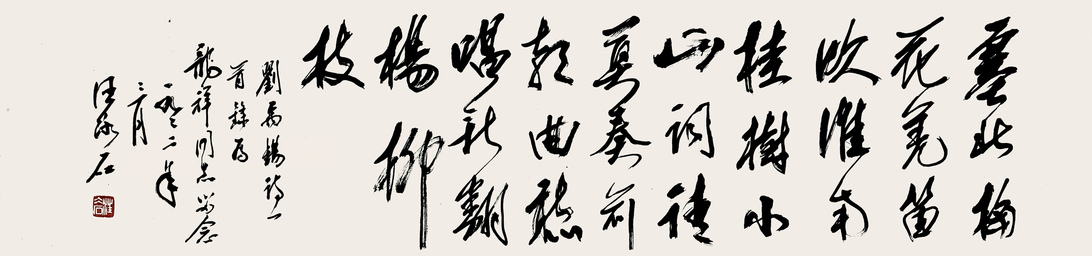 塞北梅
花羌笛
吹淮南
桂樹小
山詞請
莫奏前
朝曲聽
唱新翻
楊柳
枝
劉禹錫詩一
首錄為
龍祥同志留念
一九七二年
三月